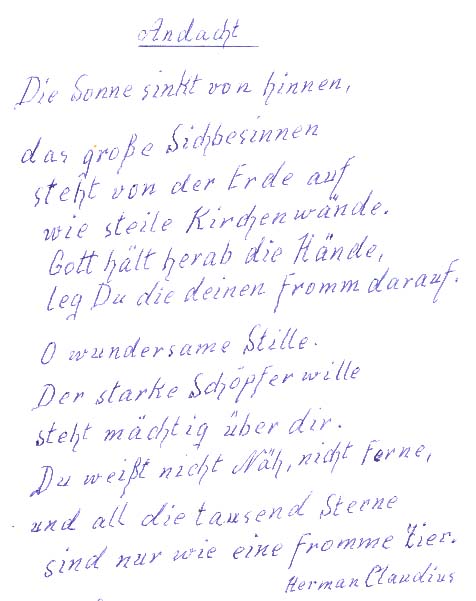 Andacht
Die Sonne sinkt von hinnen,
das große Sichbesinnen
steht von der Erde auf
wie steile Kirchenwände.
Gott hält herab die Hände,
leg Du die deinen fromm darauf.
O wundersame Stille.
Der starke Schöpferwille
steht mächtig über dir.
Du weißt nicht Näh, nicht Ferne,
und all die tausend Sterne
sind nur wie eine fromme Zier.
Herman Claudius